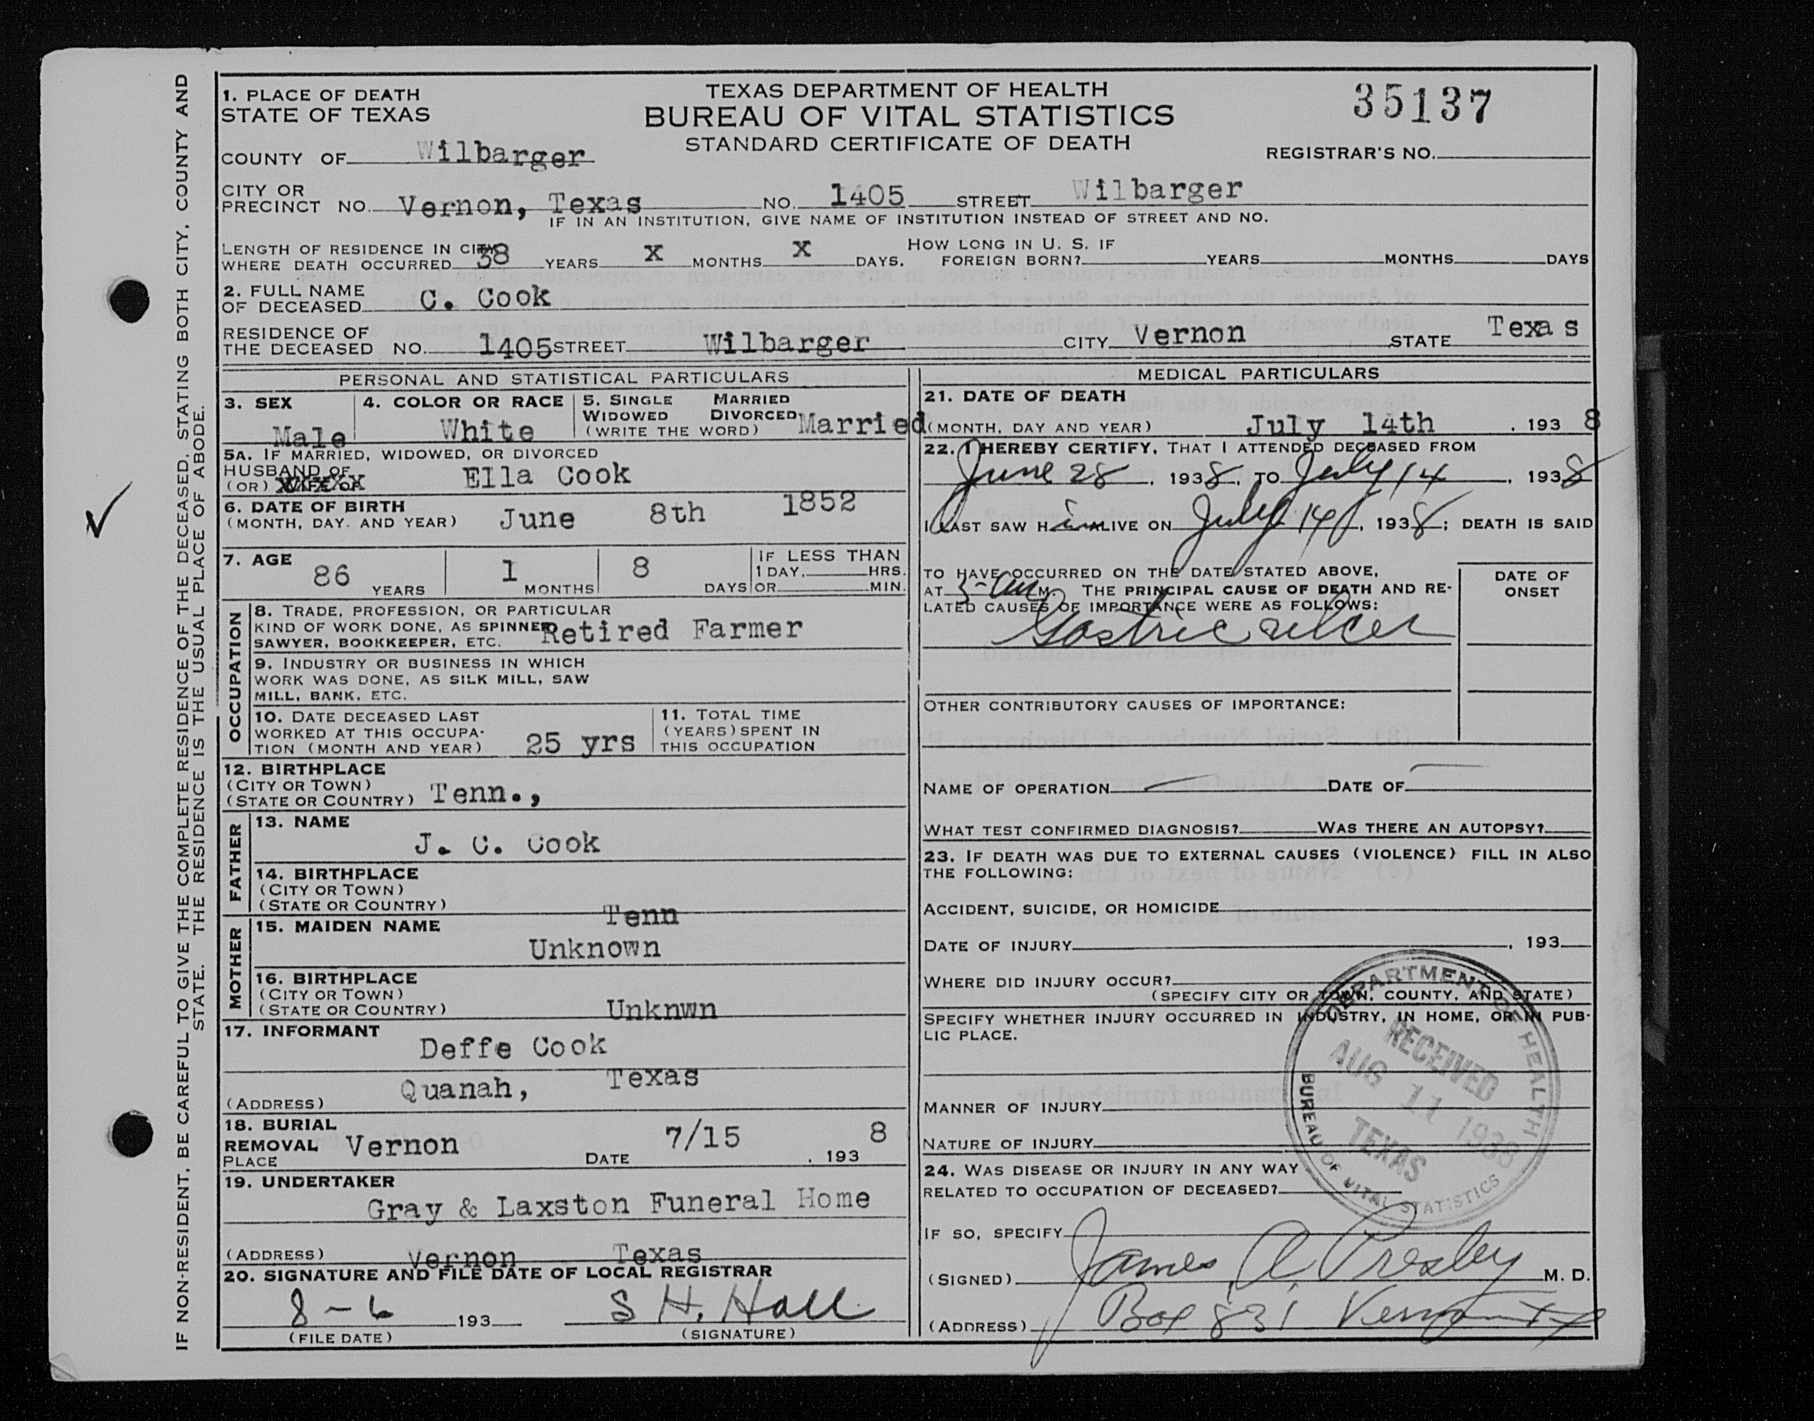 IF NON-RESIDENT, BE CAREFUL TO GIVE THE COMPLETE RESIDENCE OF THE DECEASED, STATING BOTH CITY, COUNTY AND
STATE. THE RESIDENCE IS THE USUAL PLACE OF ABODE.
TEXAS DEPARTMENT OF HEALTH
BUREAU OF VITAL STATISTICS
STANDARD CERTIFICATE OF DEATH
35137
REGISTRAR'S NO.
1. PLACE OF DEATH
STATE OF TEXAS
COUNTY OF Wilbarger
CITY OR
PRECINCT NO. Vernon, Texas NO. 1405 STREET Wilbarger
IF IN AN INSTITUTION, GIVE NAME OF INSTITUTION INSTEAD OF STREET AND NO.
LENGTH OF RESIDENCE IN CITY HOW LONG IN U. S. IF
WHERE DEATH OCCURRED 38 YEARS X MONTHS X DAYS. FOREIGN BORN? YEARS MONTHS DAYS
2. FULL NAME
OF DECEASED C. Cook
RESIDENCE OF
THE DECEASED NO. 1405 STREET Wilbarger CITY Vernon STATE Texas
PERSONAL AND STATISTICAL PARTICULARS
3. SEX
Male
4. COLOR OR RACE
White
5. SINGLE MARRIED
WIDOWED DIVORCED
(WRITE THE WORD) Married
5A. IF MARRIED, WIDOWED, OR DIVORCED
HUSBAND OF Ella Cook
(OR) WIFE OF
6. DATE OF BIRTH
(MONTH, DAY. AND YEAR) June 8th 1852
7. AGE
86 YEARS 1 MONTHS 8 DAYS
IF LESS THAN
1 DAY, HRS.
OR MIN.
OCCUPATION
8. TRADE, PROFESSION, OR PARTICULAR
KIND OF WORK DONE, AS SPINNER
SAWYER, BOOKKEEPER, ETC. Retired Farmer
9. INDUSTRY OR BUSINESS IN WHICH
WORK WAS DONE, AS SILK MILL, SAW
MILL, BANK, ETC.
10. DATE DECEASED LAST
WORKED AT THIS OCCUPA-
TION (MONTH AND YEAR) 25 yrs
11. TOTAL TIME
(YEARS) SPENT IN
THIS OCCUPATION
12. BIRTHPLACE
(CITY OR TOWN)
(STATE OR COUNTRY) Tenn.,
FATHER
13. NAME
J. C. Cook
14. BIRTHPLACE
(CITY OR TOWN)
(STATE OR COUNTRY) Tenn
MOTHER
15. MAIDEN NAME
Unknown
16. BIRTHPLACE
(CITY OR TOWN)
(STATE OR COUNTRY) Unknwn
17. INFORMANT
Deffe Cook
(ADDRESS) Quanah, Texas
18. BURIAL
REMOVAL Vernon
PLACE DATE 7/15 , 193 8
19. UNDERTAKER
Gray & Laxston Funeral Home
(ADDRESS) Vernon Texas
20. SIGNATURE AND FILE DATE OF LOCAL REGISTRAR
8-6 193 S H. Hall
(FILE DATE) (SIGNATURE)
MEDICAL PARTICULARS
21. DATE OF DEATH
(MONTH, DAY AND YEAR) July 14th , 193 8
22. I HEREBY CERTIFY, THAT I ATTENDED DECEASED FROM
June 28 , 1938, TO July 14 , 1938
I LAST SAW HIM ALIVE ON July 14 , 1938; DEATH IS SAID
TO HAVE OCCURRED ON THE DATE STATED ABOVE,
AT 5 am M. THE PRINCIPAL CAUSE OF DEATH AND RE-
LATED CAUSES OF IMPORTANCE WERE AS FOLLOWS:
DATE OF
ONSET
Gastric ulcer
OTHER CONTRIBUTORY CAUSES OF IMPORTANCE:
NAME OF OPERATION — DATE OF —
WHAT TEST CONFIRMED DIAGNOSIS? WAS THERE AN AUTOPSY?
23. IF DEATH WAS DUE TO EXTERNAL CAUSES (VIOLENCE) FILL IN ALSO
THE FOLLOWING:
ACCIDENT, SUICIDE, OR HOMICIDE
DATE OF INJURY , 193
WHERE DID INJURY OCCUR?
(SPECIFY CITY OR TOWN, COUNTY, AND STATE)
SPECIFY WHETHER INJURY OCCURRED IN INDUSTRY, IN HOME, OR IN PUB-
LIC PLACE.
MANNER OF INJURY
NATURE OF INJURY
24. WAS DISEASE OR INJURY IN ANY WAY
RELATED TO OCCUPATION OF DECEASED?
IF SO, SPECIFY
(SIGNED) James A. Presley M. D.
(ADDRESS) Box 831 Vernon Tx
DEPARTMENT OF HEALTH
RECEIVED
AUG 11 1938
TEXAS
BUREAU OF VITAL STATISTICS